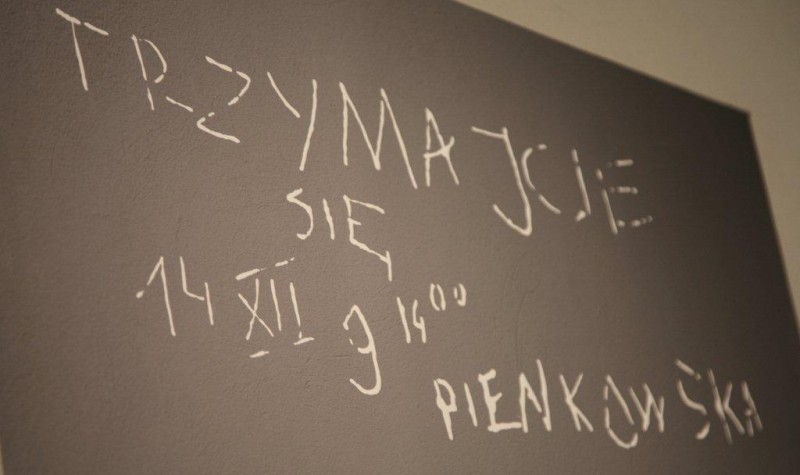 TRZYMAJCIE
SIĘ
14 XII g 14⁰⁰
PIENKOWSKA